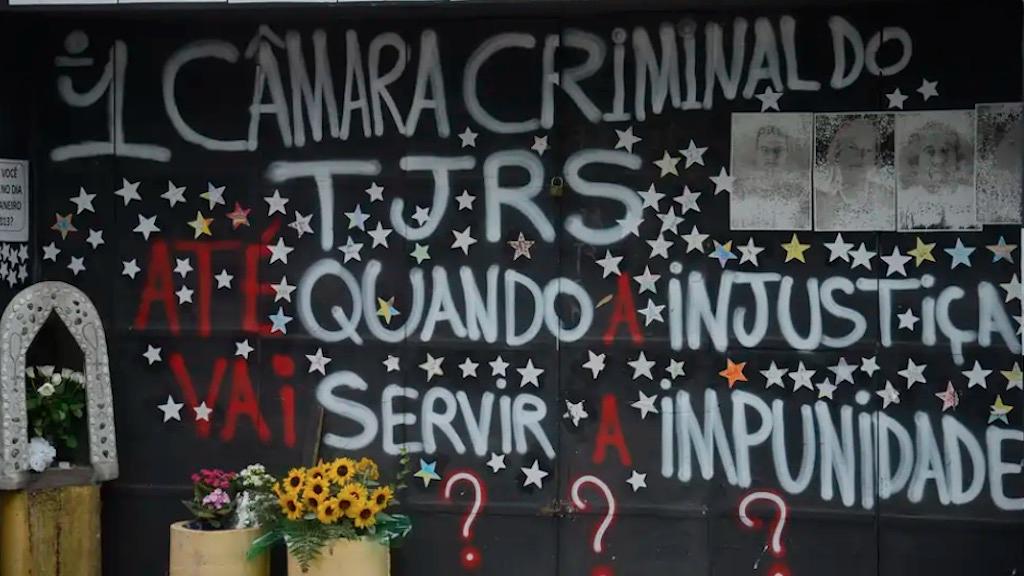 1 CÂMARA CRIMINAL DO
TJRS
ATÉ QUANDO A INJUSTIÇA
VAI SERVIR A IMPUNIDADE
? ? ?
VOCÊ
NO DIA
ANEIRO
013?